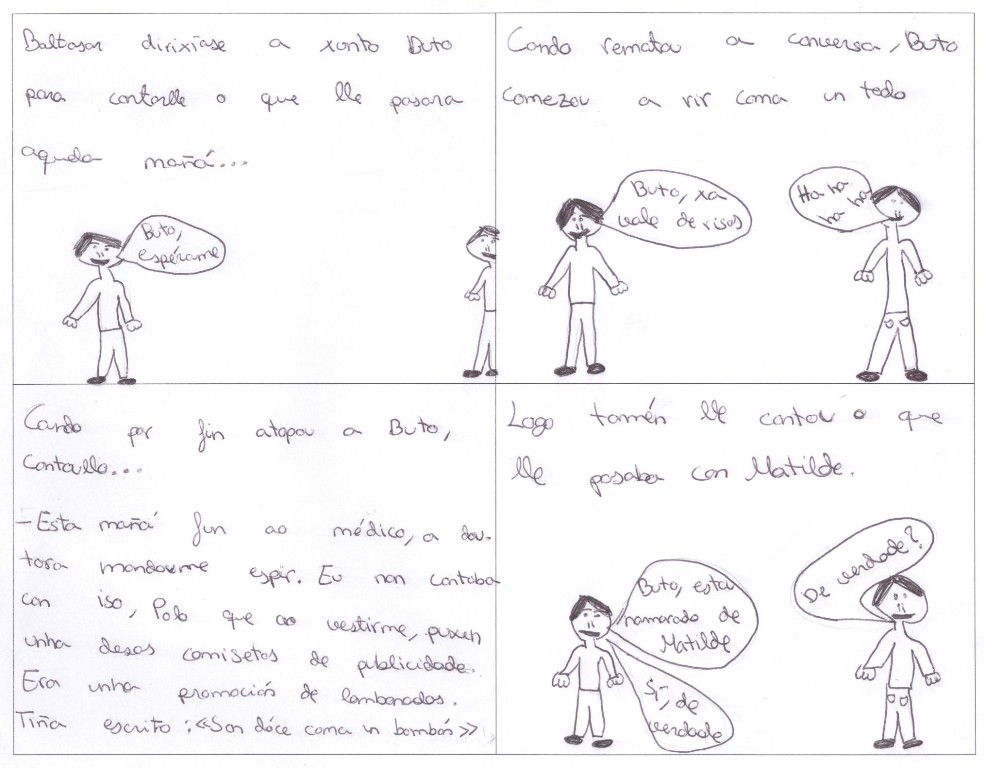 Baltasar dirixíase a xunto Buto
para contarlle o que lle pasara
aquela mañá...
Buto,
espérame
Cando por fin atopou a Buto,
Contoullo...
-Esta mañá fun ao médico, a dou-
tora mandoume espir. Eu non contaba
con iso, Polo que ao vestirme, puxen
unha desas camisetas de publicidade.
Era unha promoción de lambonadas.
Tiña escrito: «Son dóce coma un bombón»
Cando rematou a conversa, Buto
comezou a rir coma un tolo
Buto, xa
vale de risas
Ha ha
ha ha
Logo tamén lle contou o que
lle pasaba con Matilde.
Buto, estou
namorado de
Matilde
De verdade?
Si, de
verdade